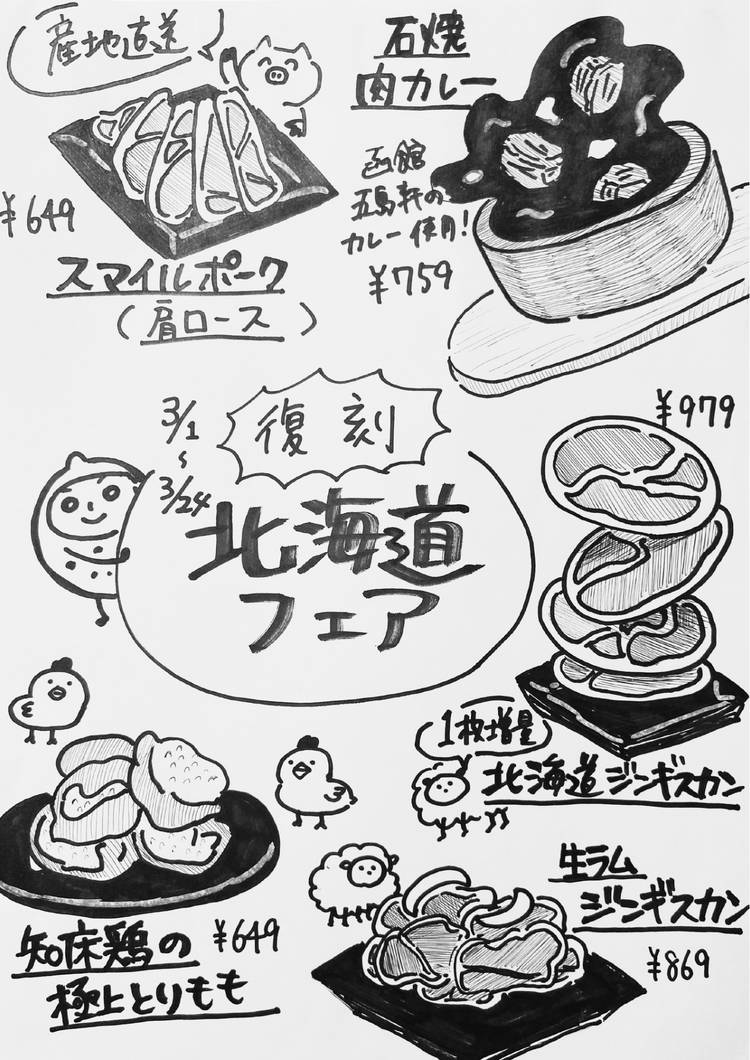 産地直送
¥649
スマイルポーク
(肩ロース)
石焼
肉カレー
函館
五島軒の
カレー使用!
¥759
3/1
~
3/24
復刻
北海道
フェア
¥979
1枚増量
北海道ジンギスカン
知床鶏の
極上とりもも
¥649
生ラム
ジンギスカン
¥869